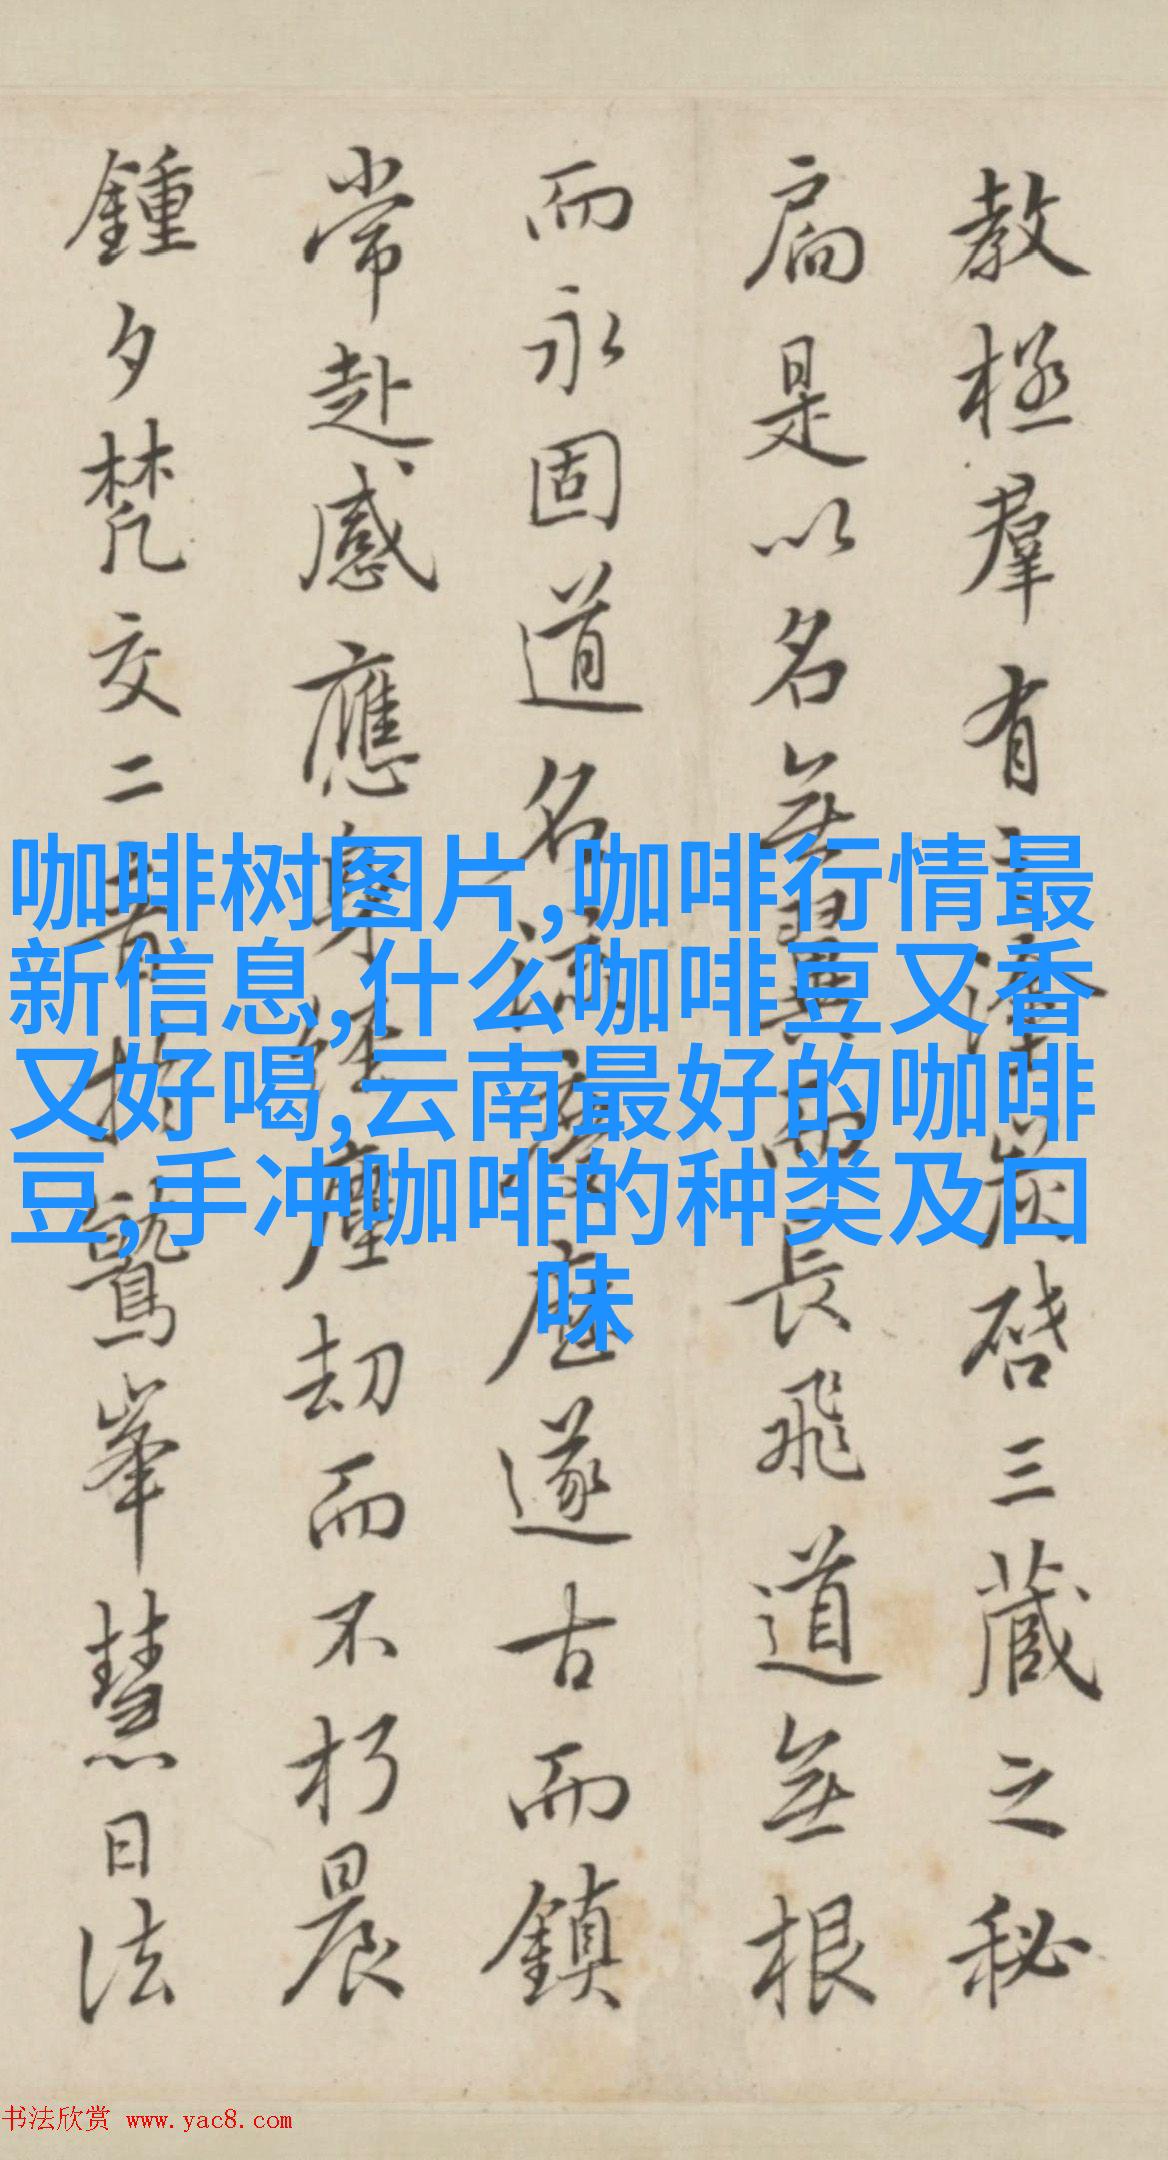 教極羣有
扁是以名無翼而長飛道無根
而永固道名流慶遂古而鎮
常赴感應身經塵劫而不朽晨
鍾夕梵交二音於鷲峯慧日法
啓三藏之秘
咖啡树图片,咖啡行情最
新信息,什么咖啡豆又香
又好喝,云南最好的咖啡
豆,手冲咖啡的种类及口
味
书法欣赏 www.yac8.com